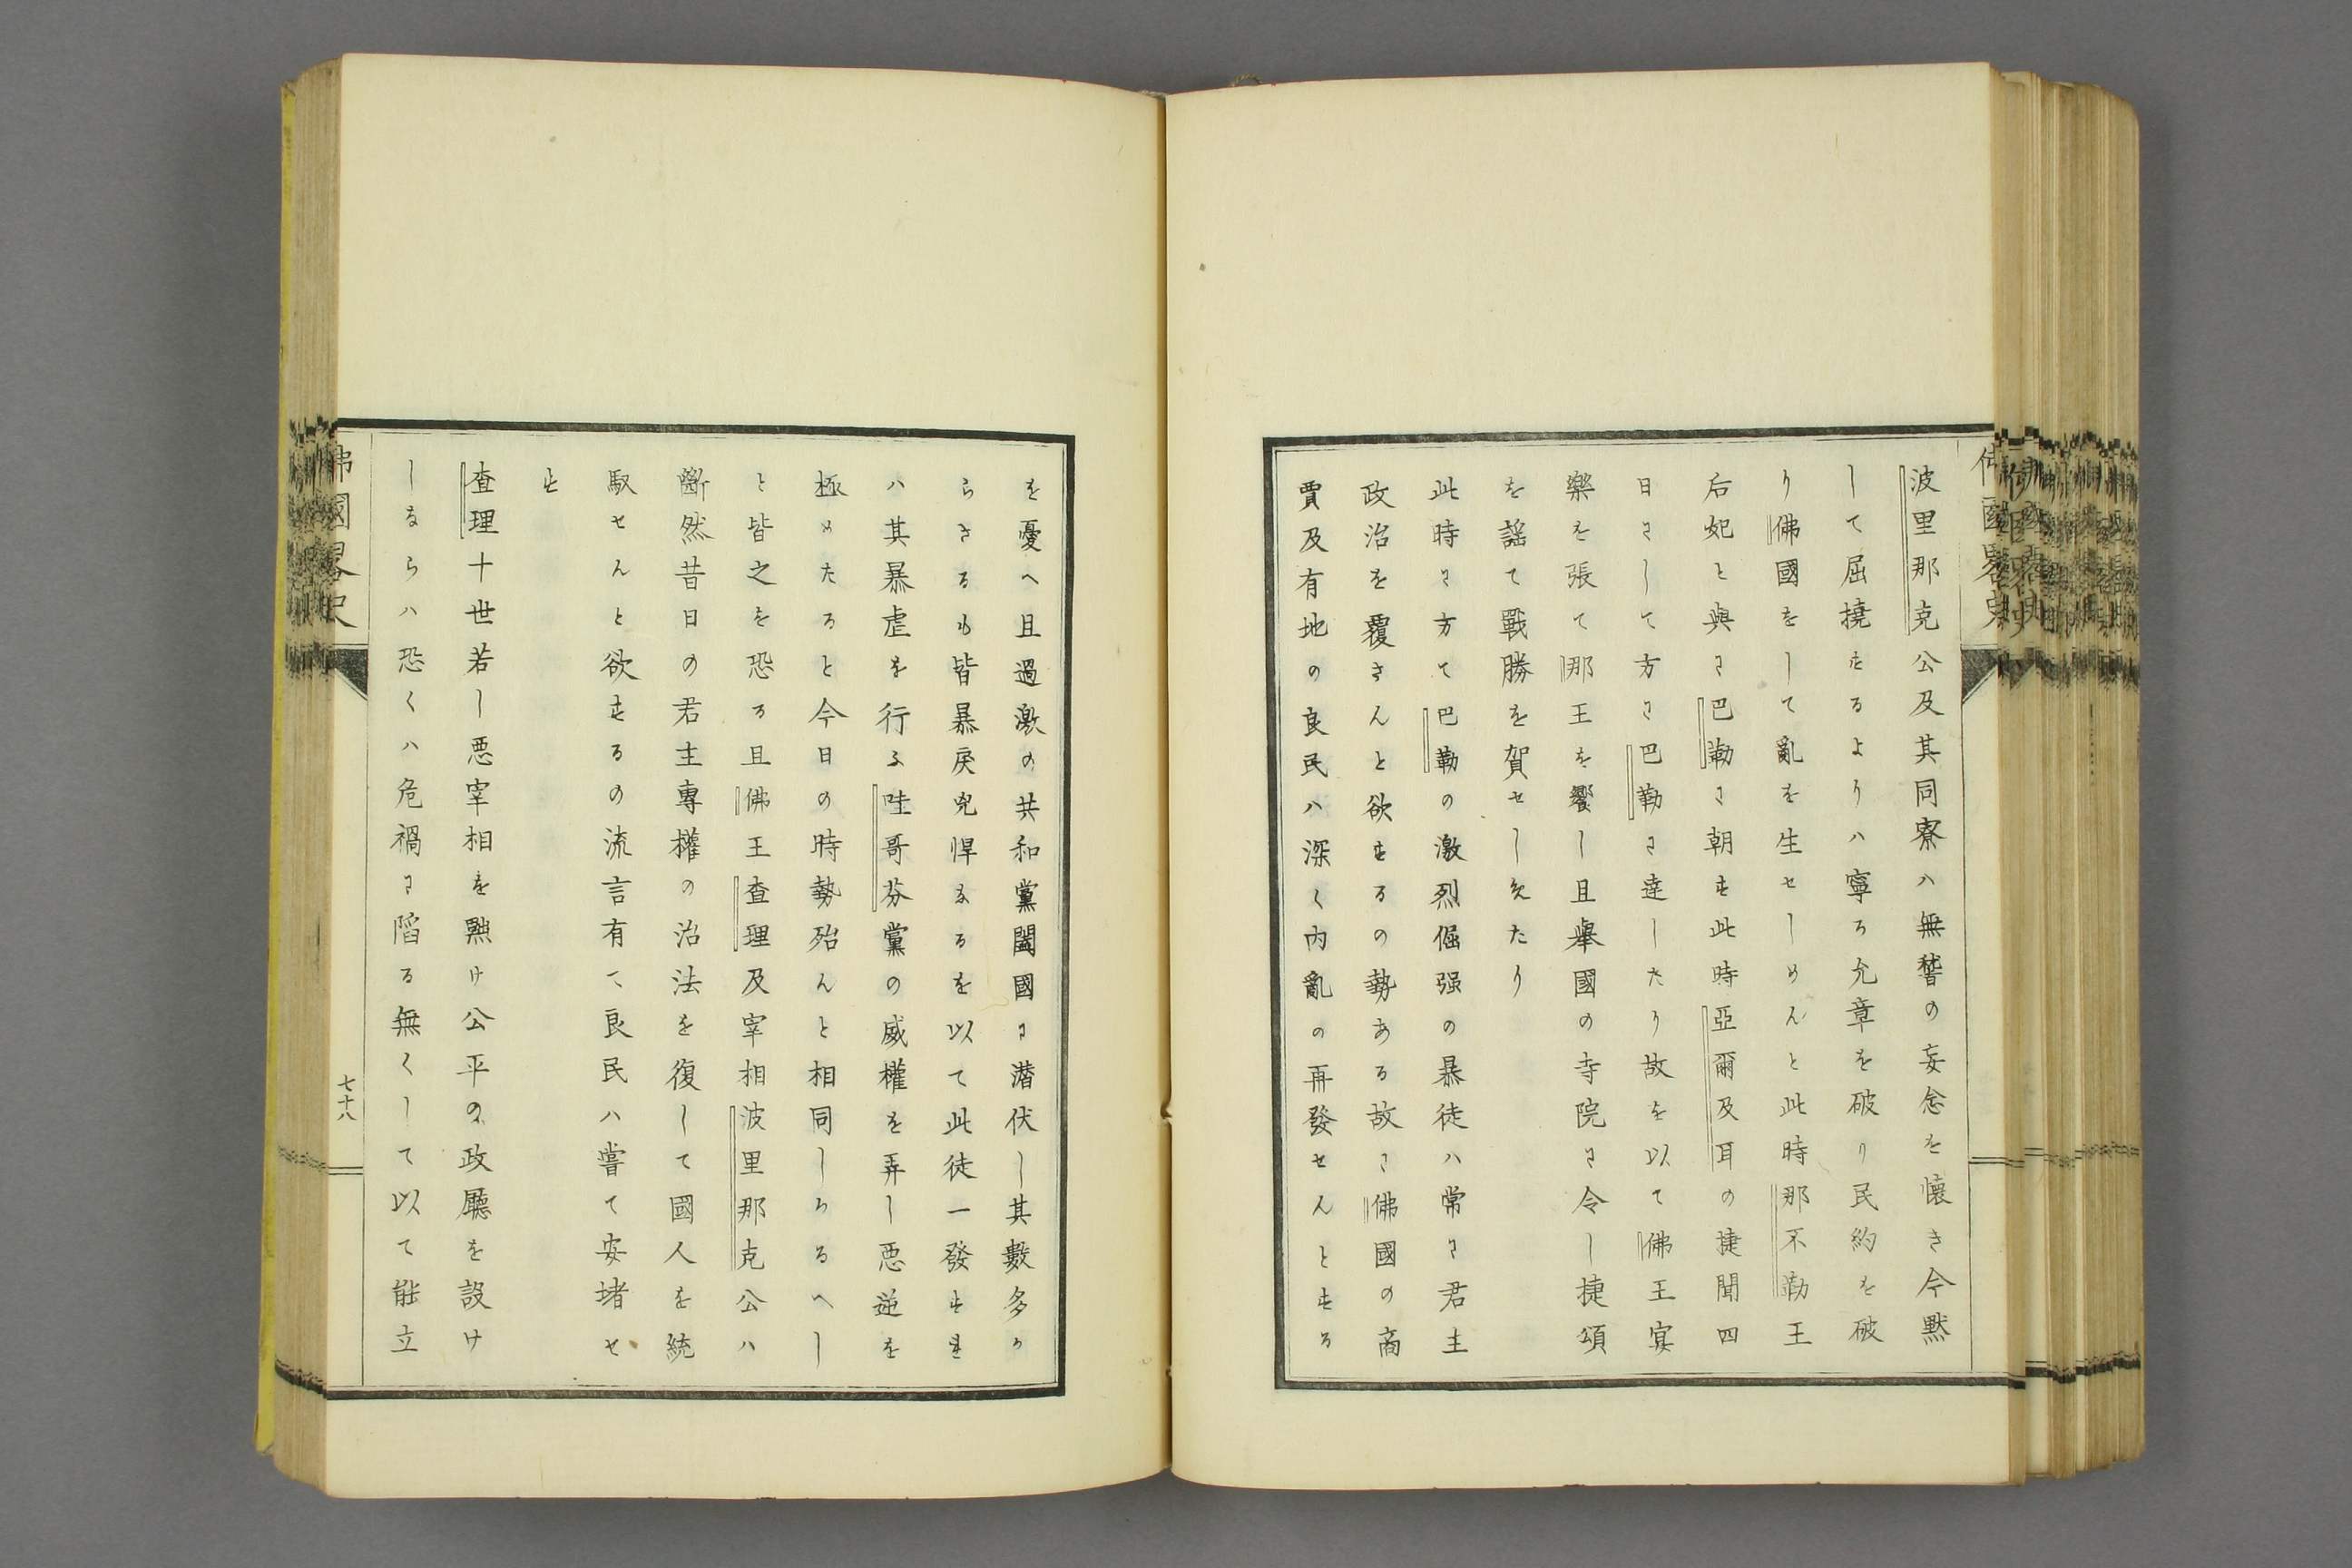 波里那克公及其同寮ハ無稽の妄念を懐き今黙
して屈撓をるよりハ寧ろ允章を破り民約を破
り佛國をして亂を生せしめんと此時那不勒王
后妃と與に巴勒に朝す此時亞爾及耳の捷聞四
日にして方に巴勒に達したり故を以て佛王宴
樂を張て那王を饗し且舉國の寺院に令し捷頌
を謡て戰勝を賀せしえたり
此時に方て巴勒の激烈倔强の暴徒ハ常に君主
政治を覆さんと欲するの勢ある故に佛國の商
賈及有地の良民ハ深く内亂の再發せんとする
を憂へ且過激の共和黨闔國に潜伏し其數多か
らさるも皆暴戻兇悍なるを以て此徒一發すれ
ハ其暴虐を行ふ哇哥芬黨の威權を弄し悪逆を
極めたると今日の時勢殆んと相同しかるへし
と皆之を恐る且佛王查理及宰相波里那克公ハ
斷然昔日の君主專權の治法を復して國人を統
馭せんと欲するの流言有て良民ハ嘗て安堵せ
す
查理十世若し悪宰相を黜け公平の政廳を設け
しならハ恐くハ危禍に陷る無くして以て能立
佛國畧史
七十八